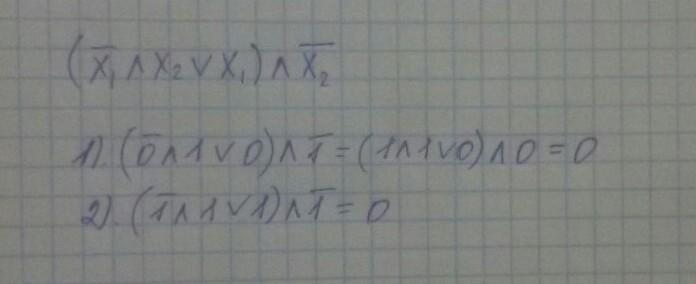 (x̅₁ ∧ x₂ ∨ x₁) ∧ x̅₂
1). (0̅ ∧ 1 ∨ 0) ∧ 1̅ = (1 ∧ 1 ∨ 0) ∧ 0 = 0
2). (1̅ ∧ 1 ∨ 1) ∧ 1̅ = 0